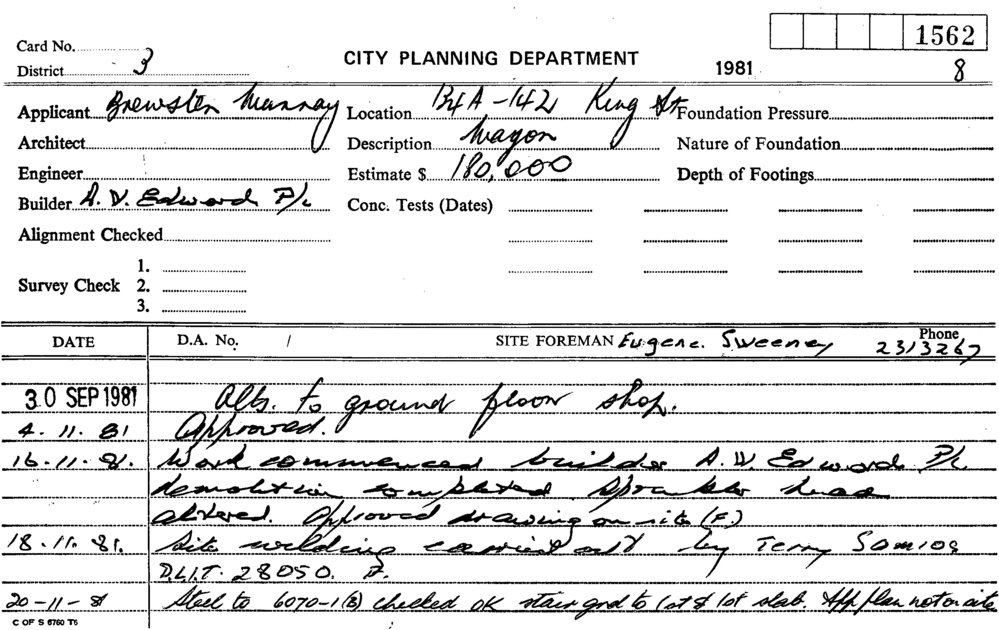 1562
Card No.
District 3
CITY PLANNING DEPARTMENT
1981
8
Applicant Brewster Murray
Location 134A-142 King St
Foundation Pressure
Architect
Description Wagon
Nature of Foundation
Engineer
Estimate $ 180,000
Depth of Footings
Builder A. V. Edward P/L
Conc. Tests (Dates)
Alignment Checked
Survey Check 1.
2.
3.
DATE D.A. No. / SITE FOREMAN Eugene. Sweeney Phone 2313267
30 SEP 1981 Alts. to ground floor shop.
4.11.81 Approved.
16.11.81. Work commenced builder A.W. Edward P/L
demolition completed sprinkler head
altered. Approved drawing on site (F.)
18.11.81. Site welding carried out by Terry Samios
D.L.I.T. 28050. F.
20-11-81 Steel to 6070-1(B) checked OK stair gnd to 1st & 1st slab. App plan not on site
C OF S 6760 T5